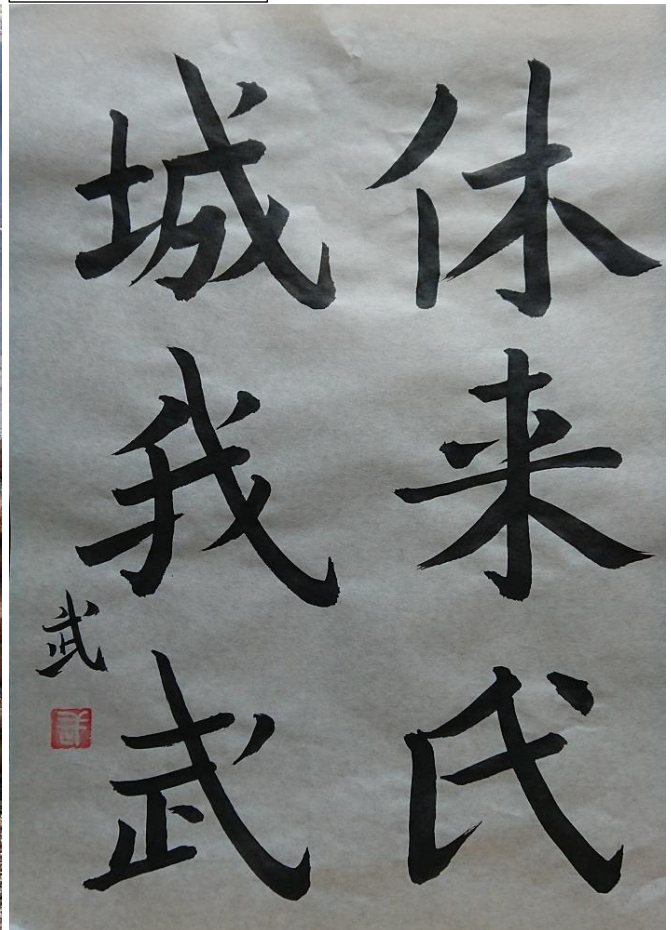 休来氏
城我武
武
武